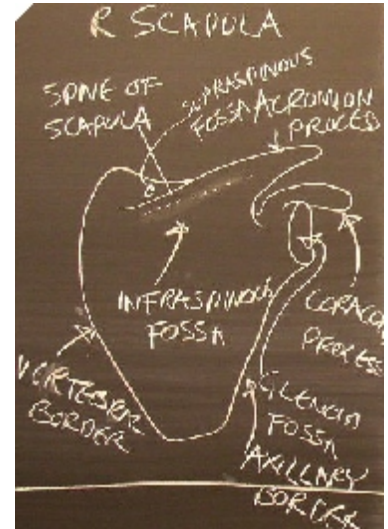 R SCAPULA
SPINE OF
SCAPULA
SUPRASPINOUS
FOSSA
ACROMION
PROCES
INFRASPINOUS
FOSSA
CORACOID
PROCESS
VERTEBRAL
BORDER
GLENOID
FOSSA
AXILLARY
BORDER